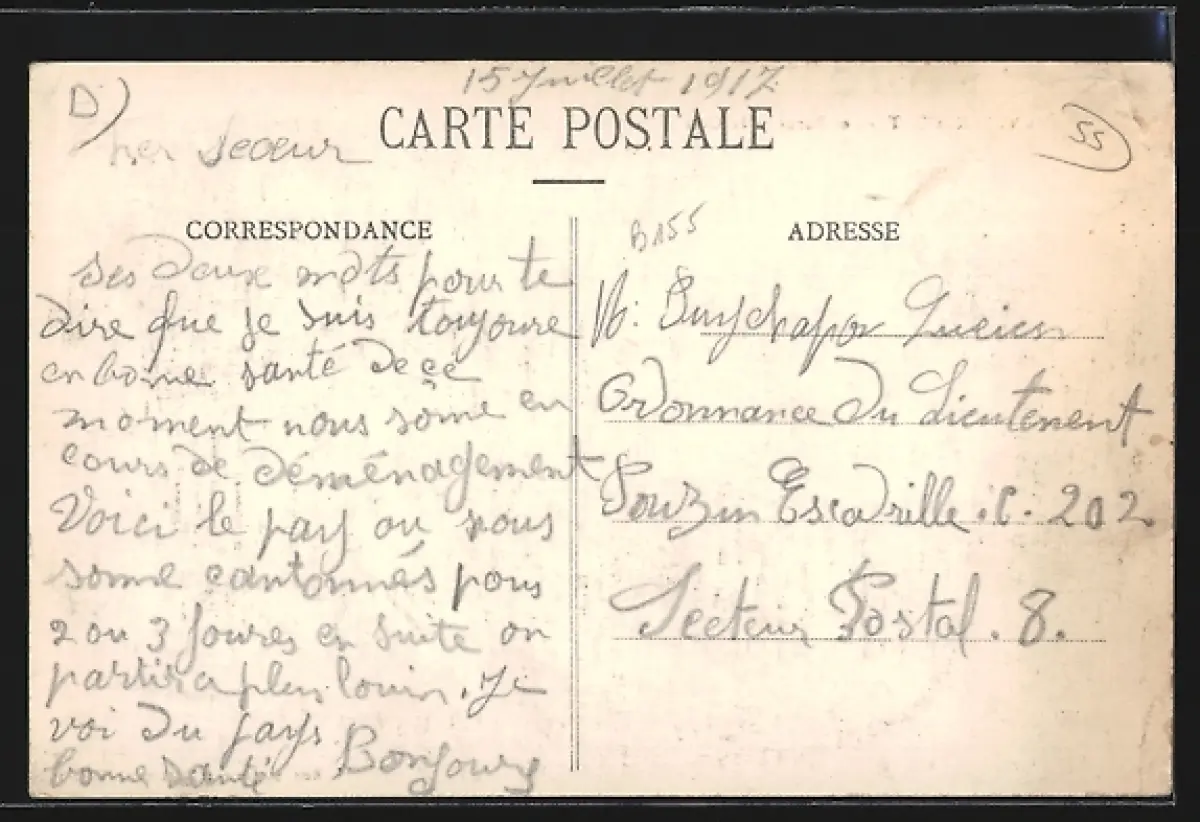 15 Juillet 1917
D)
CARTE POSTALE
55
secœur
CORRESPONDANCE
ses Deux mots pour te
Dire que je suis toujoure
en bonne santé De ce
moment nous some en
cours de déménagement
Voici le pay ou nous
somme cantonnés pour
2 ou 3 Joures en suite on
partira plus louin. Je
voi Du pays
bonne santé Bonjours
B155
ADRESSE
Ordonnance Du Lieutenent
Escadrille. C. 202
Secteur Postal. 8.